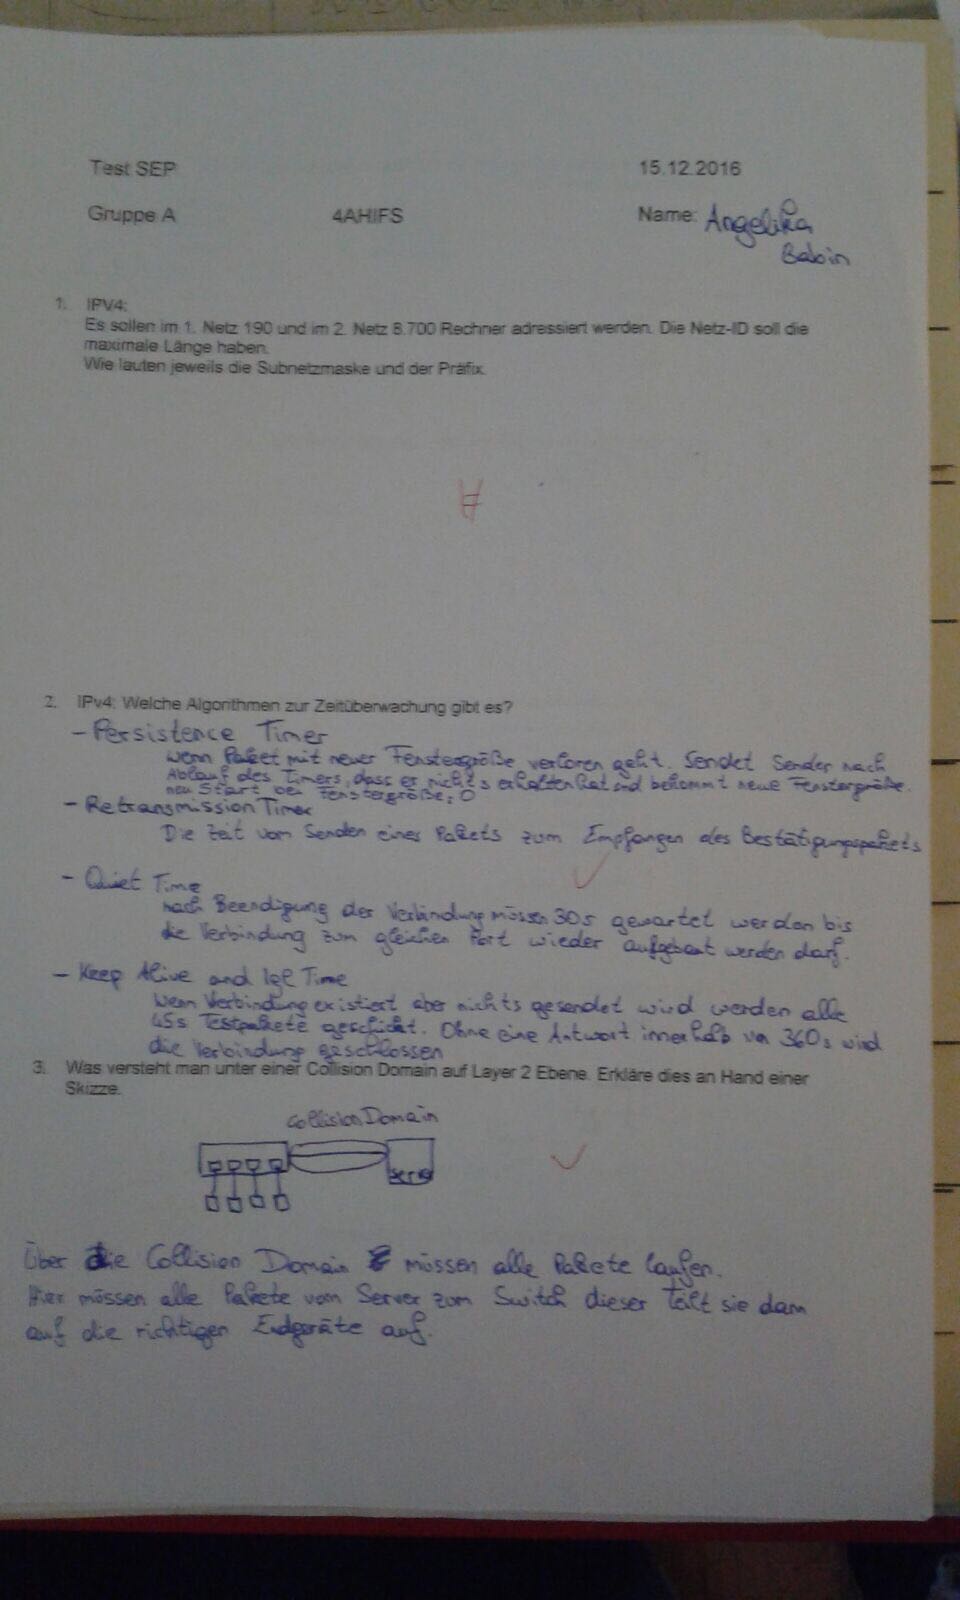 Test SEP 15.12.2016
Gruppe A 4AHIFS Name: Angelika
Babin
1. IPV4:
Es sollen im 1. Netz 190 und im 2. Netz 8.700 Rechner adressiert werden. Die Netz-ID soll die
maximale Länge haben.
Wie lauten jeweils die Subnetzmaske und der Präfix.
2. IPv4: Welche Algorithmen zur Zeitüberwachung gibt es?
- Persistence Timer
wenn Paket mit neuer Fenstergröße verloren geht. Sendet Sender nach
Ablauf des Timers, dass er nichts erhalten hat und bekommt neue Fenstergröße.
neu Start bei Fenstergröße: 0
- Retransmission Timer
Die Zeit vom Senden eines Pakets zum Empfangen des Bestätigungspakets
- Quiet Time
nach Beendigung der Verbindung müssen 30s gewartet werden bis
die Verbindung zum gleichen Port wieder aufgebaut werden darf.
- Keep Alive and Time
Wenn Verbindung existiert aber nichts gesendet wird werden alle
45s Testpakete geschickt. Ohne eine Antwort innerhalb von 360s wird
die Verbindung geschlossen
3. Was versteht man unter einer Collision Domain auf Layer 2 Ebene. Erkläre dies an Hand einer
Skizze.
Collision Domain
Server
Über die Collision Domain müssen alle Pakete laufen.
Hier müssen alle Pakete vom Server zum Switch dieser teilt sie dann
auf die richtigen Endgeräte auf.